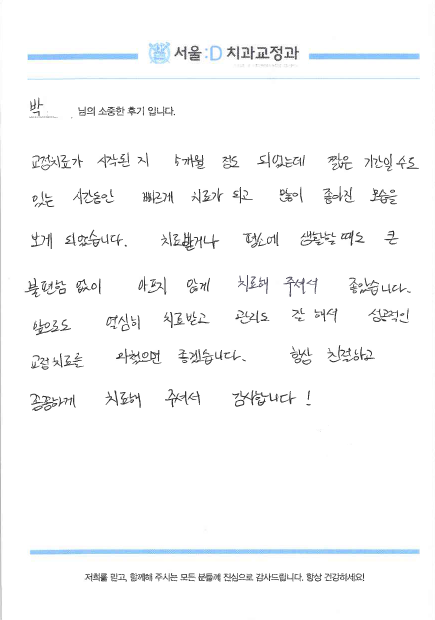 서울:D 치과교정과
박 님의 소중한 후기 입니다.
교정치료가 시작된 지 5개월 정도 되었는데 짧은 기간일 수도
있는 시간동안 빠르게 치료가 되고 많이 좋아진 모습을
보게 되었습니다. 치료받거나 평소에 생활할 때도 큰
불편함 없이 아프지 않게 치료해 주셔서 좋았습니다.
앞으로도 열심히 치료받고 관리도 잘 해서 성공적인
교정치료를 마쳤으면 좋겠습니다. 항상 친절하고
꼼꼼하게 치료해 주셔서 감사합니다!
저희를 믿고, 함께해 주시는 모든 분들께 진심으로 감사드립니다. 항상 건강하세요!